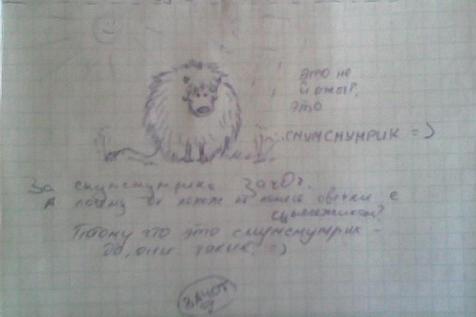 Это не
йомыг,
это
смумсмумрик =)
За смумсмумрика ЗачОт.
А почему он похож на помесь овечки с
цыплёнком?
Потому что это смумсмумрик -
да, они такие. =)
ЗАЧОТ!